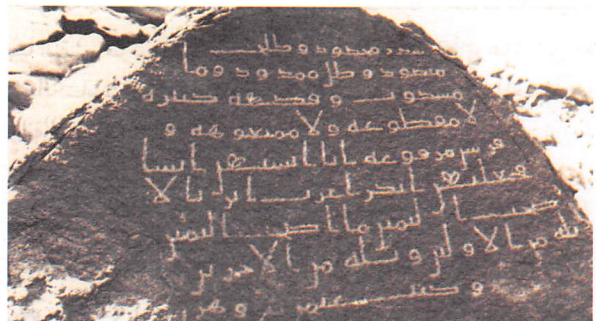 سدر مخضود وطلح
منضود وظل ممدود وما
مسكوب وفكهة كثيرة
لا مقطوعة ولا ممنوعة و
فرش مرفوعة انا انشانهن انشا
فجعلنهن ابكرا عربا اترابا لا
صحب اليمين ما اصحب اليمين
ثلة من الاولين وثلة من الاخرين
وكتب